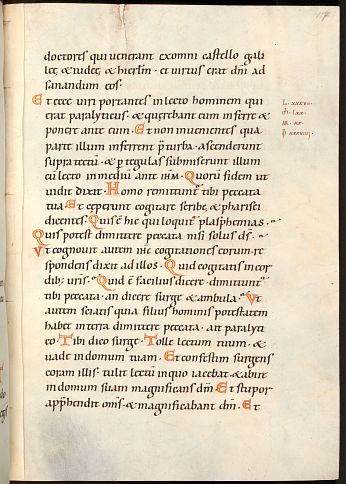 doctores qui venerant ex omni castello gali
leę & iudeę & hierlm̄ · et virtus erat dn̄i ad
sanandum eos·
Et ecce viri portantes in lecto hominem qui
erat paralyticus· & querebant eum inferre &
ponere ante eum· Et non invenientes qua
parte illum inferrent p̄ turba· ascenderunt
supra tectū· & p tegulas submiserunt illum
cū lecto in mediū ante ihm̄· Quorū fidem ut
vidit dixit· Homo remittunt̄ tibi peccata
tua· Et cęperunt cogitare scribę & pharisei
dicentes· Quis ē hic qui loquit̄ blasphemias·
Quis potest dimittere peccata nisi solus ds̄·
Vt cognovit autem ihc̄ cogitationes eorum· re
spondens dixit ad illos· Quid cogitatis in cor
dib; vr̄is· Quid ē facilius dicere· dimittunt̄
tibi peccata· an dicere surge & ambula· Vt
autem sciatis quia filius hominis potestatem
habet in terra dimittere peccata· ait paralyti
co· Tibi dico surge· Tolle lectum tuum· &
vade in domum tuam· Et confestim surgens
coram illis· tulit lectū in quo iacebat· & abiit
in domum suam magnificans dm̄· Et stupor
app̄hendit om̄s· & magnificabant dm̄· Et